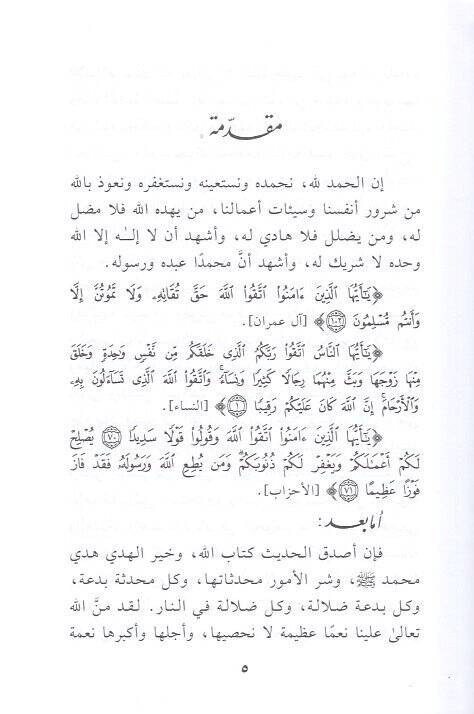 مقدّمة
إن الحمد لله، نحمده ونستعينه ونستغفره ونعوذ بالله
من شرور أنفسنا وسيئات أعمالنا، من يهده الله فلا مضل
له، ومن يضلل فلا هادي له، وأشهد أن لا إلٰه إلا الله
وحده لا شريك له، وأشهد أنَّ محمدًا عبده ورسوله.
﴿يَٰٓأَيُّهَا ٱلَّذِينَ ءَامَنُوا۟ ٱتَّقُوا۟ ٱللَّهَ حَقَّ تُقَاتِهِۦ وَلَا تَمُوتُنَّ إِلَّا
وَأَنتُم مُّسْلِمُونَ ١٠٢﴾ [آل عمران].
﴿يَٰٓأَيُّهَا ٱلنَّاسُ ٱتَّقُوا۟ رَبَّكُمُ ٱلَّذِى خَلَقَكُم مِّن نَّفْسٍ وَٰحِدَةٍ وَخَلَقَ
مِنْهَا زَوْجَهَا وَبَثَّ مِنْهُمَا رِجَالًا كَثِيرًا وَنِسَآءً ۚ وَٱتَّقُوا۟ ٱللَّهَ ٱلَّذِى تَسَآءَلُونَ بِهِۦ
وَٱلْأَرْحَامَ ۚ إِنَّ ٱللَّهَ كَانَ عَلَيْكُمْ رَقِيبًا ١﴾ [النساء].
﴿يَٰٓأَيُّهَا ٱلَّذِينَ ءَامَنُوا۟ ٱتَّقُوا۟ ٱللَّهَ وَقُولُوا۟ قَوْلًا سَدِيدًا ٧٠ يُصْلِحْ
لَكُمْ أَعْمَٰلَكُمْ وَيَغْفِرْ لَكُمْ ذُنُوبَكُمْ ۗ وَمَن يُطِعِ ٱللَّهَ وَرَسُولَهُۥ فَقَدْ فَازَ
فَوْزًا عَظِيمًا ٧١﴾ [الأحزاب].
أما بعد:
فإن أصدق الحديث كتاب الله، وخير الهدي هدي
محمد ﷺ، وشر الأمور محدثاتها، وكل محدثة بدعة،
وكل بدعة ضلالة، وكل ضلالة في النار. لقد منَّ الله
تعالىٰ علينا نعمًا عظيمة لا نحصيها، وأجلها وأكبرها نعمة
٥